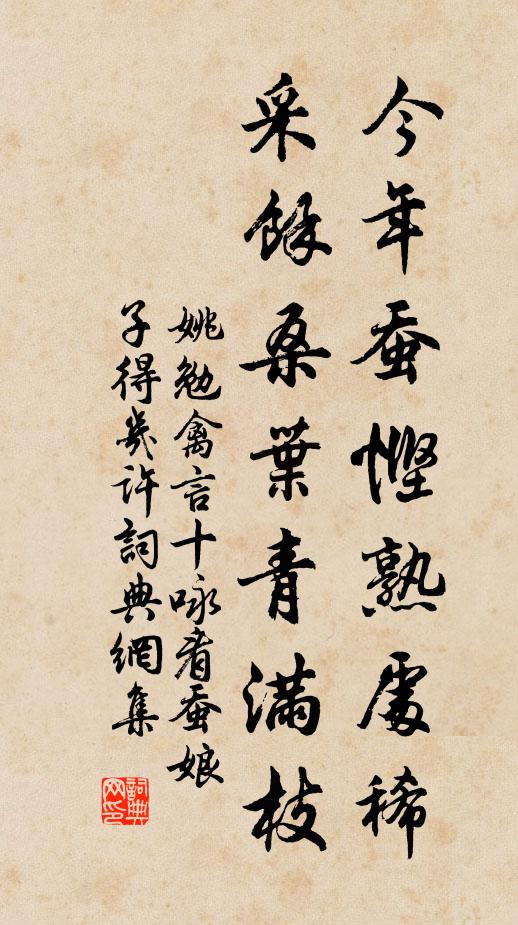 今年蚕慳熟處稀
采餘桑葉青滿枝
姚勉禽言十咏看蚕娘
子得幾許詞典網集
詞典网印